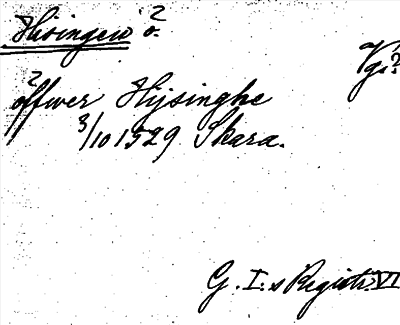 Hisingen ö.
Vgs?
öffwer Hijsinghe
3/10 1529 Skara.
G. I:s Registr. VI